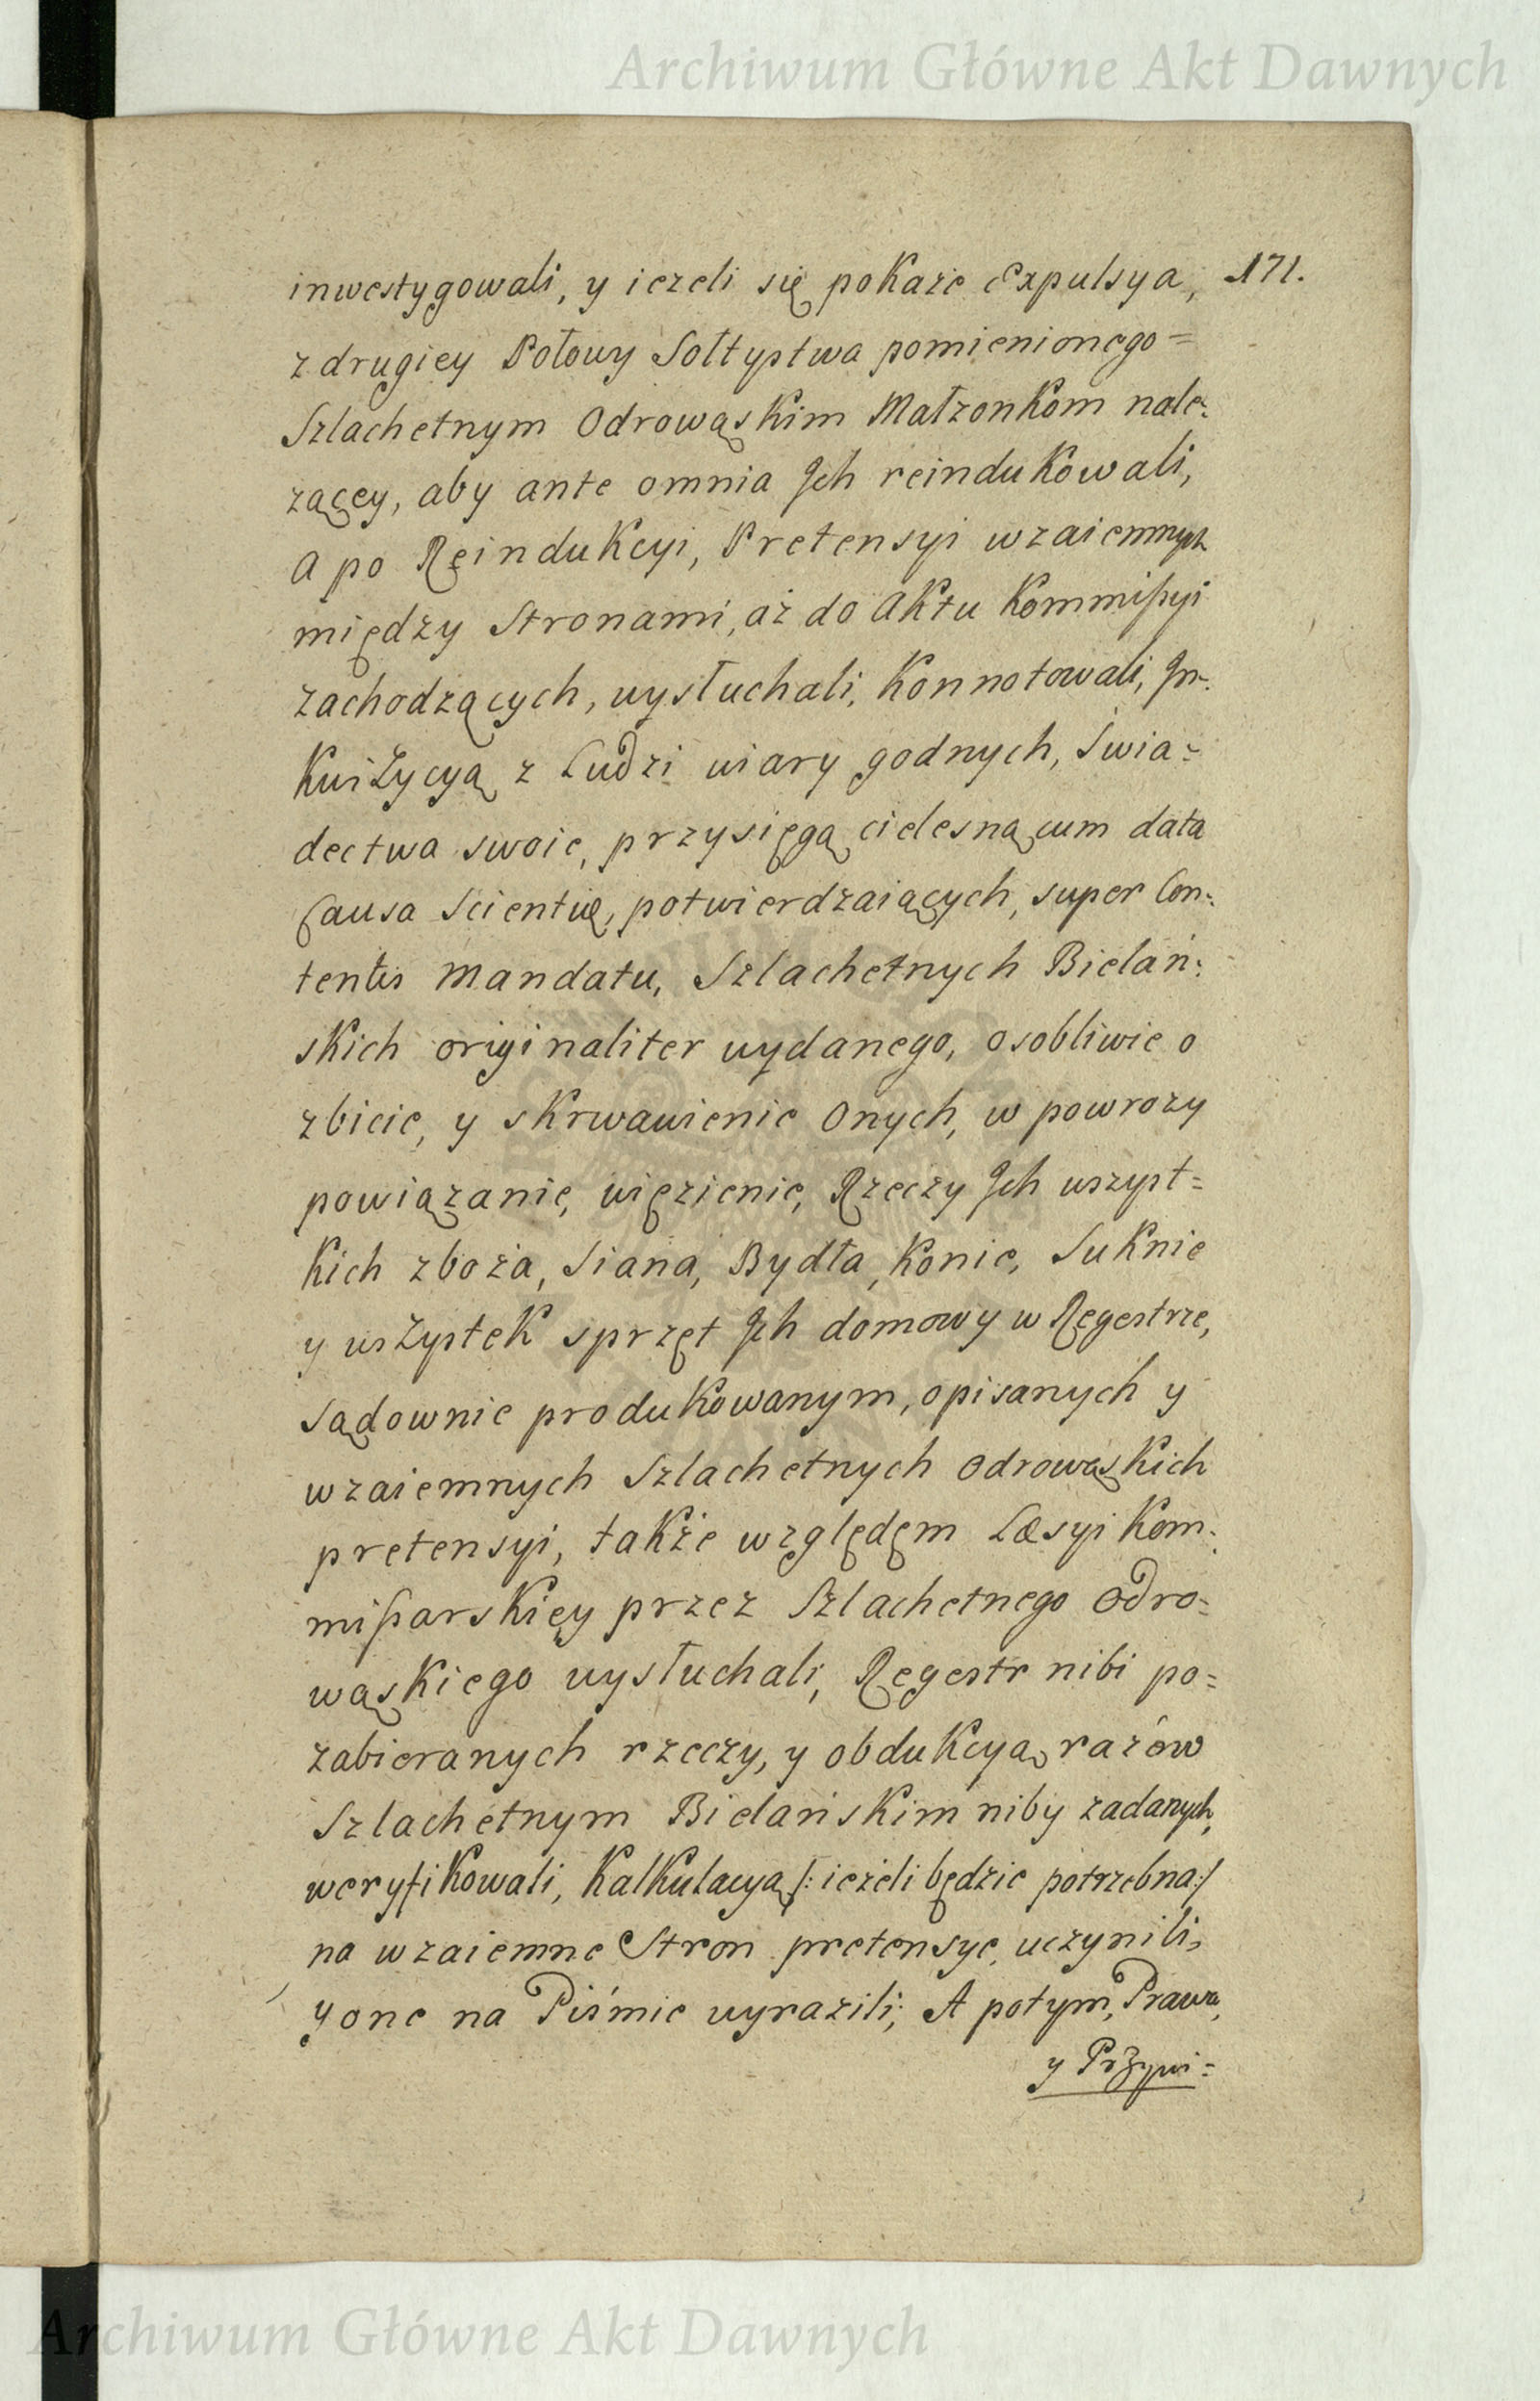 Archiwum Główne Akt Dawnych
171.
inwestygowali, y iezeli się pokaże Expulsya,
z drugiey Połowy Sołtystwa pomienionego=
Szlachetnym Odrowąskim Małzonkom nale=
zącey, aby ante omnia Jch reindukowali,
a po Reindukcyi, Pretensyi wzaiemnych
między Stronami, aż do aktu Kommißyi
zachodzących, wysłuchali, Konnotowali, Jn=
Kwizycyą z Ludzi wiary godnych, Swia=
dectwa swoie, przysięgą cielesną cum data
Causa Scientiæ, potwierdzaiących, super Con=
tentis Mandatu, Szlachetnych Bielań=
skich originaliter wydanego, osobliwie o
zbicie, y skrwawienie Onych, w powrozy
powiązanie, więzienie, Rzeczy Jch wszyst=
kich zboża, Siana, Bydła, Konie, Suknie
y wszystek sprzęt Jch domowy w Regestrze,
Sądownie produkowanym, opisanych y
wzaiemnych Szlachetnych Odrowąskich
pretensyi, także względem Læsyi Kom=
mißarskiey przez Szlachetnego Odro=
wąskiego wysłuchali, Regestr nibi po=
zabieranych rzeczy, y obdukcyą razów
Szlachetnym Bielańskim niby zadanych,
weryfikowali, Kalkulacyą /: ieżeli będzie potrzebna :/
na wzaiemne Stron pretensye, uczynili,
y one na Piśmie wyrazili; A potym, Prawa,
y Przywi=
Archiwum Główne Akt Dawnych